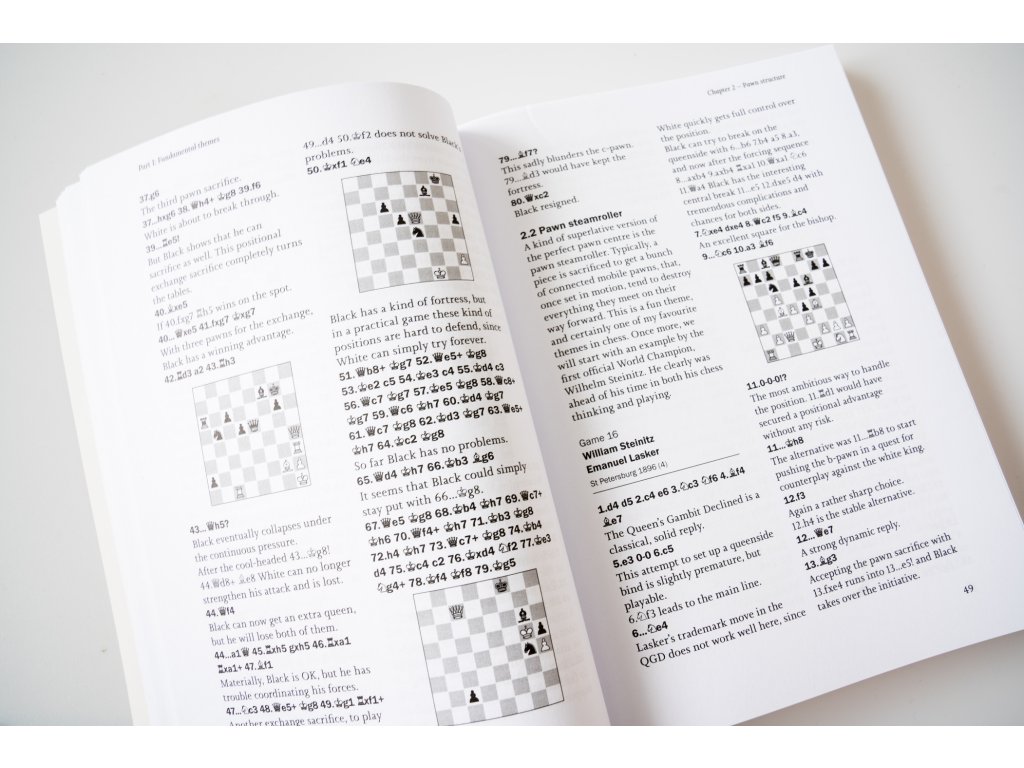 Part I: Fundamental themes
37.g6
The third pawn sacrifice.
37...hxg6 38.♕h4+ ♔g8 39.f6
White is about to break through.
39...♖e5!
But Black shows that he can
sacrifice as well. This positional
exchange sacrifice completely turns
the tables.
40.♗xe5
If 40.fxg7 ♖h5 wins on the spot.
40...♕xe5 41.fxg7 ♔xg7
With three pawns for the exchange,
Black has a winning advantage.
42.♖d3 a2 43.♖h3
43...♕h5?
Black eventually collapses under
the continuous pressure.
After the cool-headed 43...♔g8!
44.♕d8+ ♗e8 White can no longer
strengthen his attack and is lost.
44.♕f4
Black can now get an extra queen,
but he will lose both of them.
44...a1♕ 45.♖xh5 gxh5 46.♖xa1
♖xa1+ 47.♗f1
Materially, Black is OK, but he has
trouble coordinating his forces.
47...♘c3 48.♕e5+ ♔g8 49.♔g1 ♖xf1+
Another exchange sacrifice, to play
49...d4 50.♔f2 does not solve Black's
problems.
50.♔xf1 ♘e4
Black has a kind of fortress, but
in a practical game these kind of
positions are hard to defend, since
White can simply try forever.
51.♕b8+ ♔g7 52.♕e5+ ♔g8
53.♔e2 c5 54.♔e3 c4 55.♔d4 c3
56.♕c7 ♔g7 57.♕e5 ♔g8 58.♕c8+
♔g7 59.♕c6 ♔h7 60.♔d4 ♔g7
61.♕c7 ♔g8 62.♔d3 ♔g7 63.♕e5+
♔h7 64.♔c2 ♔g8
So far Black has no problems.
65.♕d4 ♔h7 66.♔b3 ♗g6
It seems that Black could simply
stay put with 66...♔g8.
67.♕e5 ♔g8 68.♔b4 ♔h7 69.♕c7+
♔h6 70.♕f4+ ♔h7 71.♔b3 ♔g8
72.h4 ♔h7 73.♕c7+ ♔g8 74.♔b4
d4 75.♔c4 c2 76.♔xd4 ♘f2 77.♔e3
♘g4+ 78.♔f4 ♔f8 79.♔g5
Chapter 2 – Pawn structure
79...♗f7?
This sadly blunders the c-pawn.
79...♗d3 would have kept the
fortress.
80.♕xc2
Black resigned.
2.2 Pawn steamroller
A kind of superlative version of
the perfect pawn centre is the
pawn steamroller. Typically, a
piece is sacrificed to get a bunch
of connected mobile pawns, that,
once set in motion, tend to destroy
everything they meet on their
way forward. This is a fun theme,
and certainly one of my favourite
themes in chess. Once more, we
will start with an example by the
first official World Champion,
Wilhelm Steinitz. He clearly was
ahead of his time in both his chess
thinking and playing.
Game 16
William Steinitz
Emanuel Lasker
St Petersburg 1896 (4)
1.d4 d5 2.c4 e6 3.♘c3 ♘f6 4.♗f4
♗e7
The Queen's Gambit Declined is a
classical, solid reply.
5.e3 0-0 6.c5
This attempt to set up a queenside
bind is slightly premature, but
playable.
6.♘f3 leads to the main line.
6...♘e4
Lasker's trademark move in the
QGD does not work well here, since
White quickly gets full control over
the position.
Black can try to break on the
queenside with 6...b6 7.b4 a5 8.a3,
and now after the forcing sequence
8...axb4 9.axb4 ♖xa1 10.♕xa1 ♘c6
11.♕a4 Black has the interesting
central break 11...e5 12.dxe5 d4 with
tremendous complications and
chances for both sides.
7.♘xe4 dxe4 8.♕c2 f5 9.♗c4
An excellent square for the bishop.
9...♘c6 10.a3 ♗f6
11.0-0-0!?
The most ambitious way to handle
the position. 11.♖d1 would have
secured a positional advantage
without any risk.
11...♔h8
The alternative was 11...♖b8 to start
pushing the b-pawn in a quest for
counterplay against the white king.
12.f3
Again a rather sharp choice.
12.h4 is the stable alternative.
12...♕e7
A strong dynamic reply.
13.♗g3
Accepting the pawn sacrifice with
13.fxe4 runs into 13...e5! and Black
takes over the initiative.
49